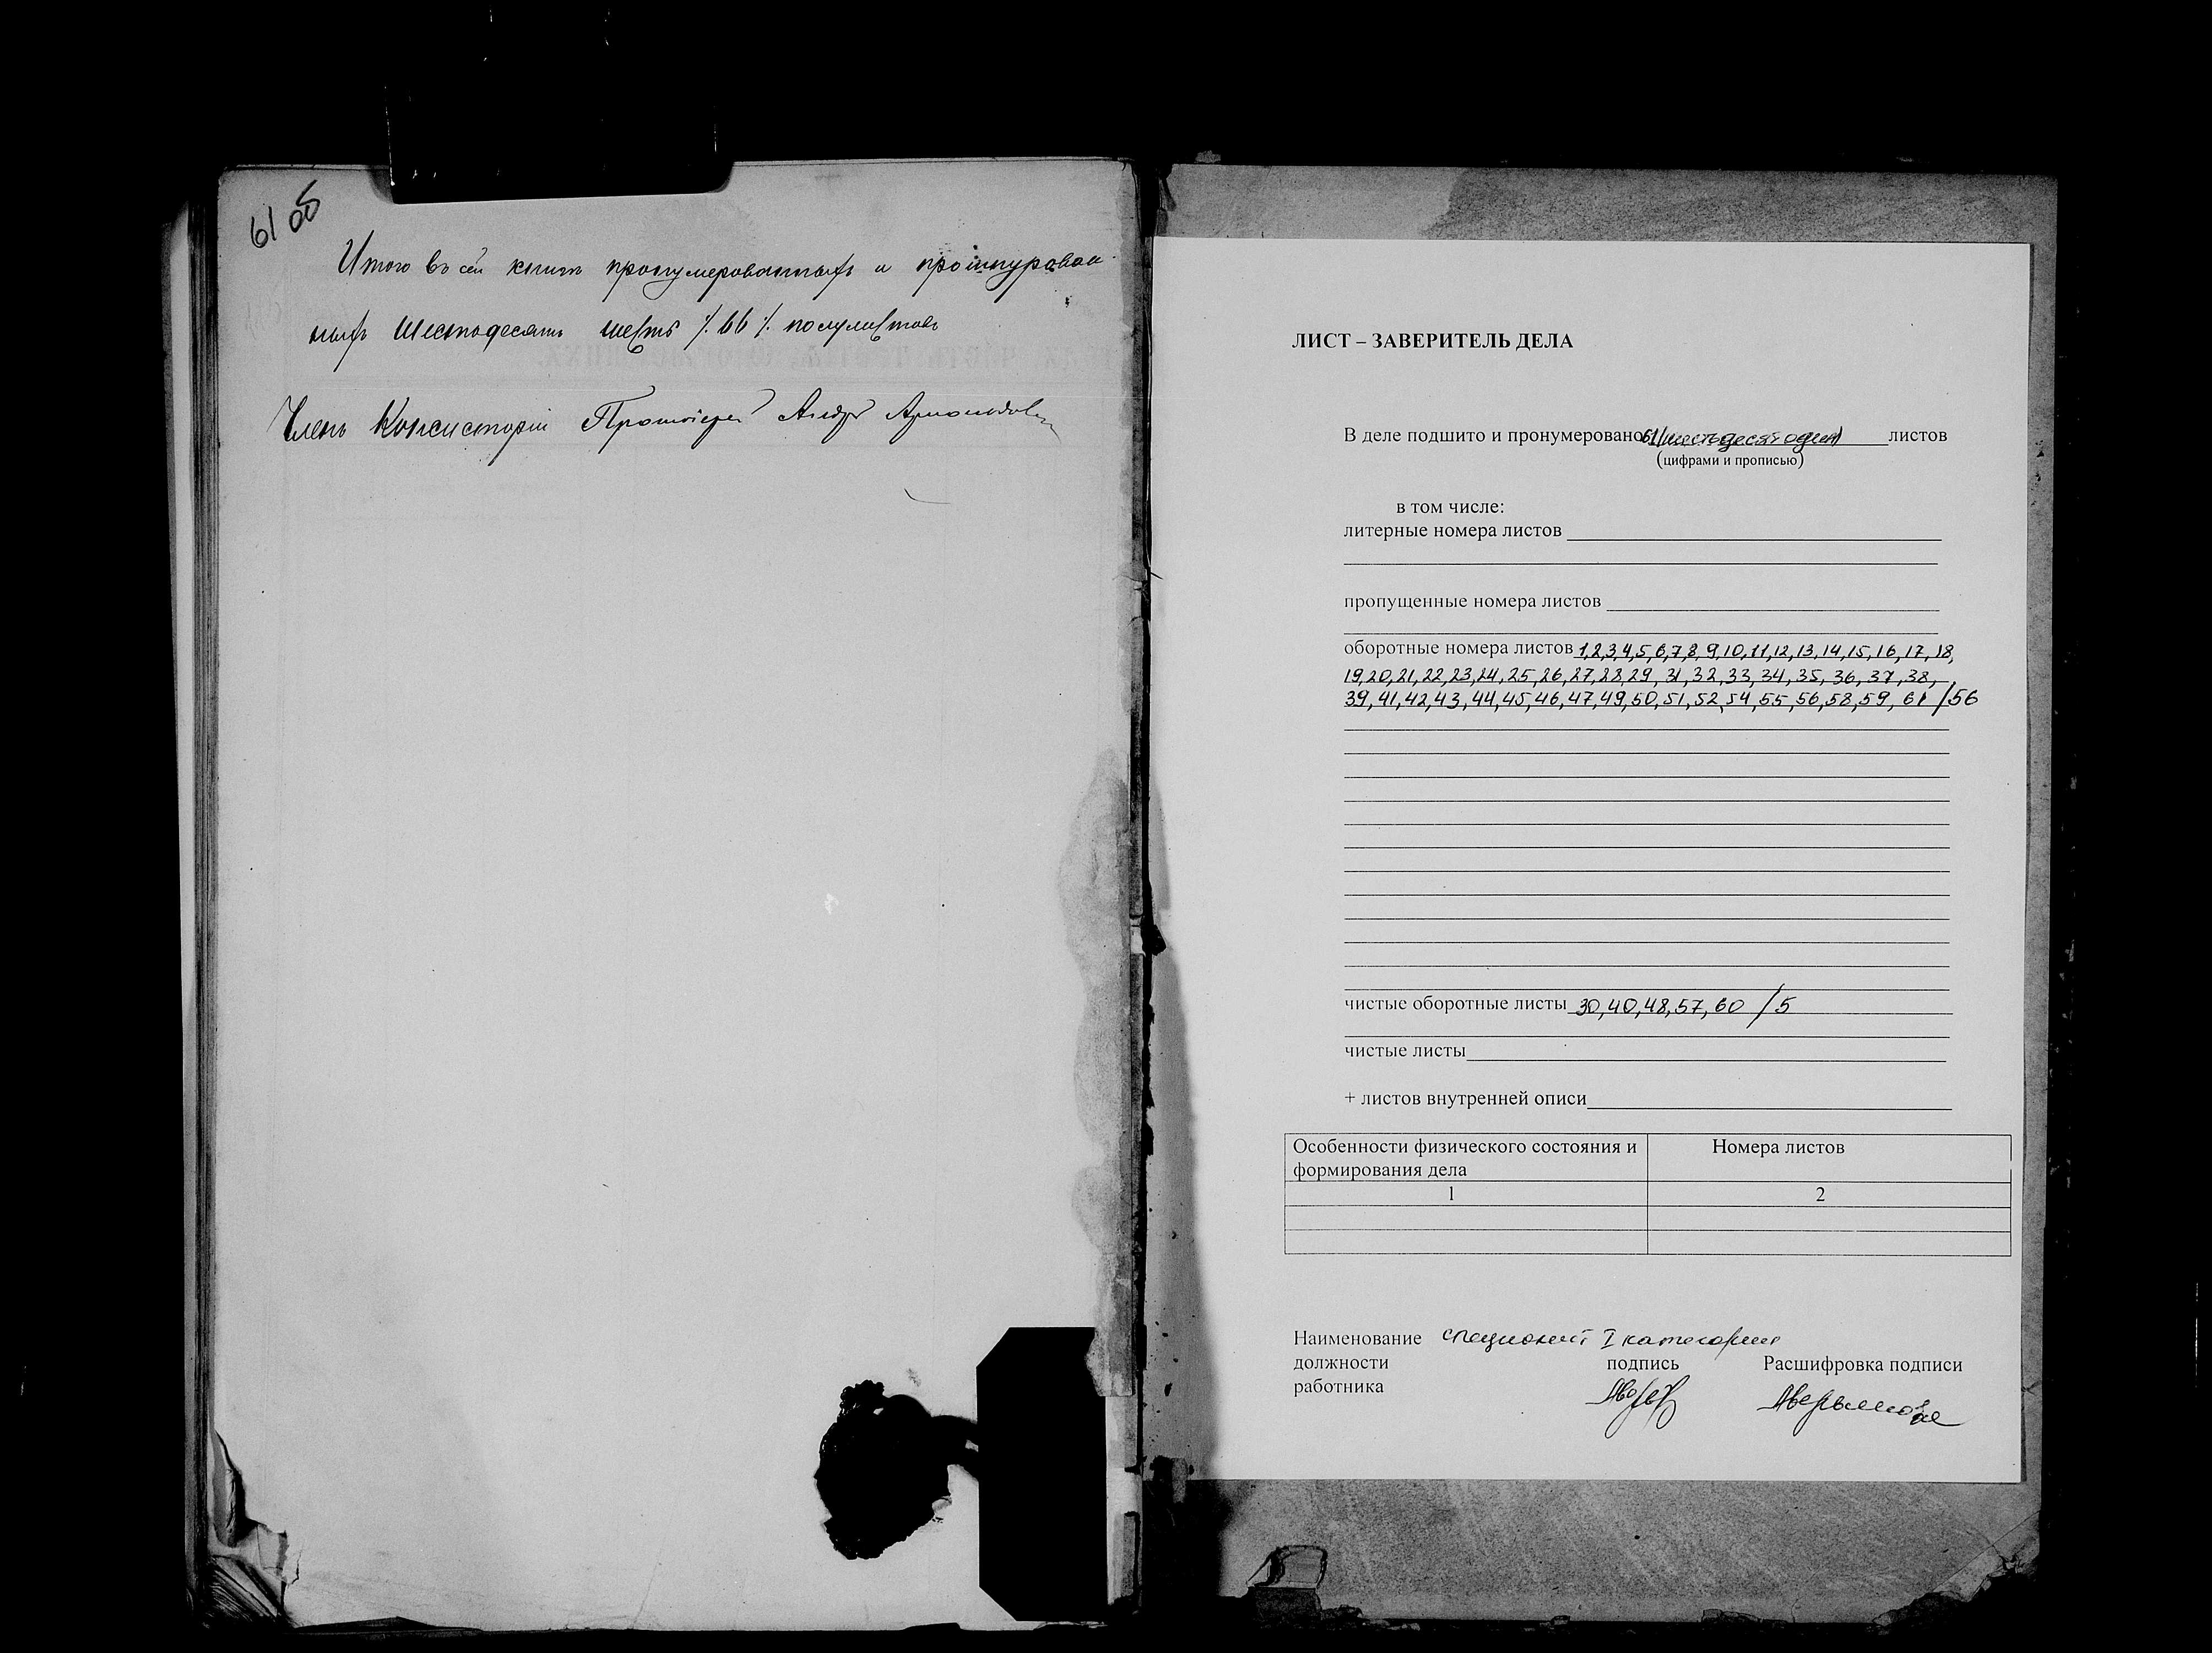 61 об
Итого въ сей книгѣ пронумерованныхъ и прошнурован-
ныхъ Шестьдесятъ шесть /. 66 /. полулистовъ
Членъ Консисторіи Протоіерей
ЛИСТ – ЗАВЕРИТЕЛЬ ДЕЛА
В деле подшито и пронумеровано 61 (шестьдесят один) листов
(цифрами и прописью)
в том числе:
литерные номера листов
пропущенные номера листов
оборотные номера листов 1,2,3,4,5,6,7,8,9,10,11,12,13,14,15,16,17,18,
19,20,21,22,23,24,25,26,27,28,29,31,32,33,34,35,36,37,38,
39,41,42,43,44,45,46,47,49,50,51,52,54,55,56,58,59,61 /56
чистые оборотные листы 30,40,48,57,60 /5
чистые листы
+ листов внутренней описи
Особенности физического состояния и Номера листов
формирования дела
1 2
Наименование специалист I категории
должности подпись Расшифровка подписи
работника